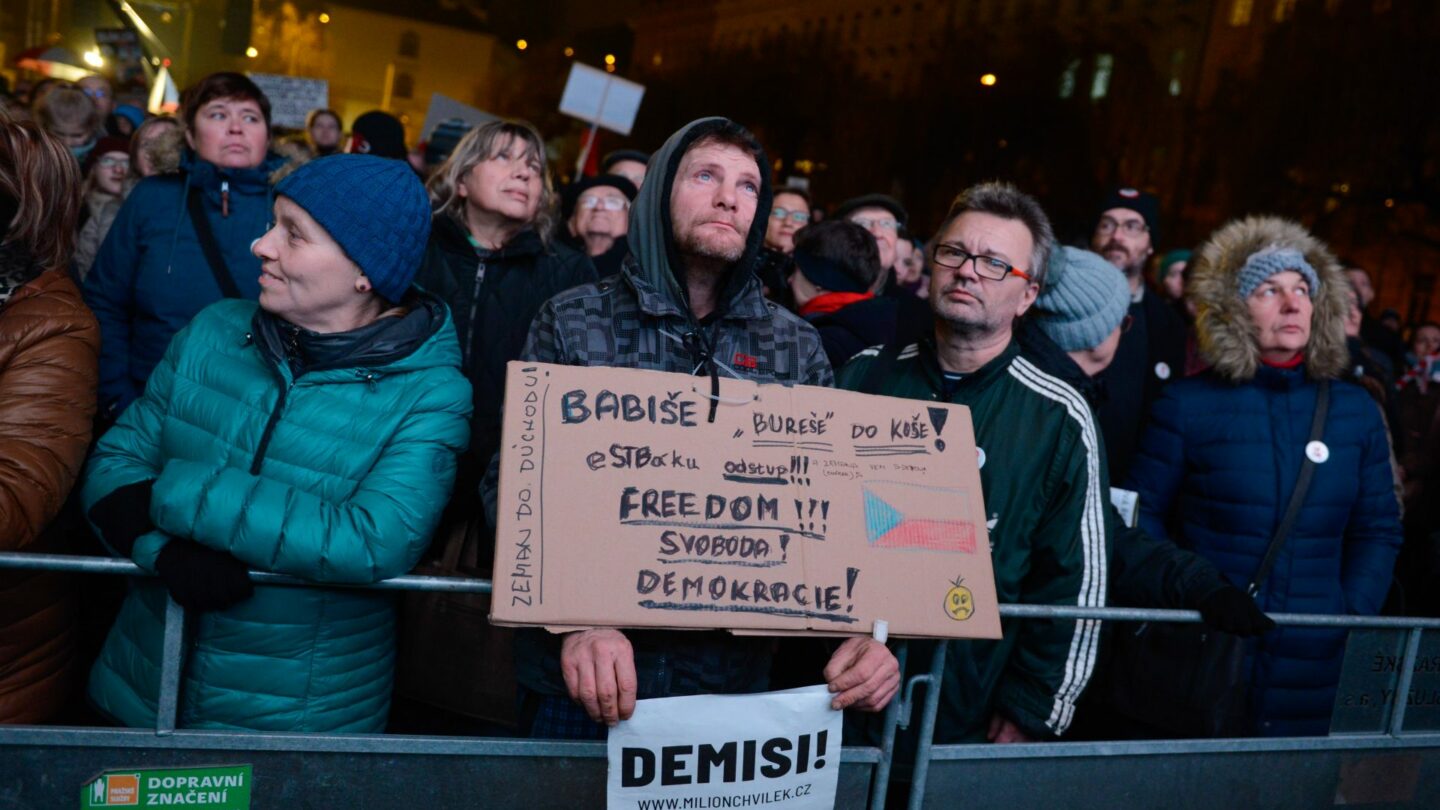 ZEMAN DO. DŮCHODU!
BABIŠE „BUREŠE" DO KOŠE!
eSTBáku odstup!!!
FREEDOM !!!
SVOBODA!
DEMOKRACIE!
DEMISI!
WWW.MILIONCHVILEK.CZ
PRAŽSKÉ
SLUŽBY
DOPRAVNÍ
ZNAČENÍ